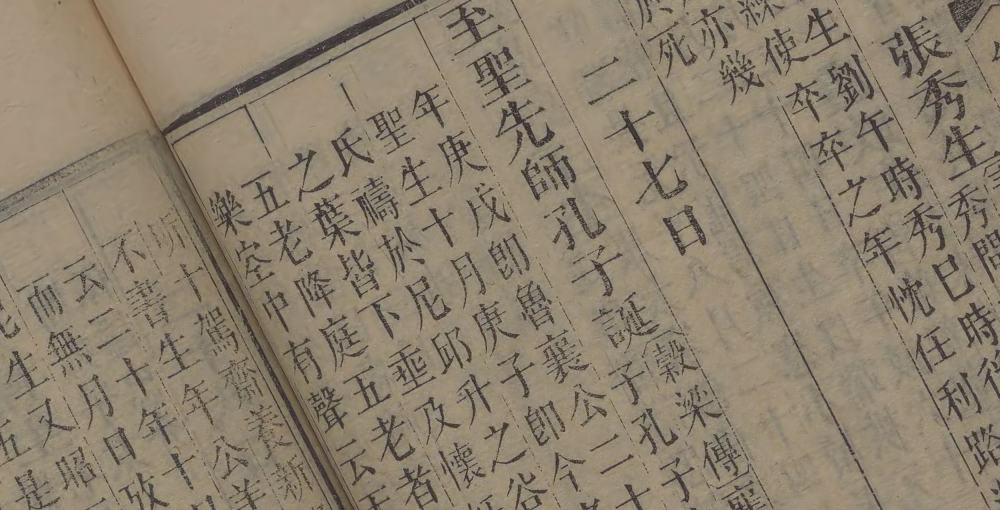 張秀生秀
生劉午時秀巳時後
繇使卒卒之年忱任利路
亦幾
於死
二十七日
至聖先師孔子誕
穀梁傳襄
子孔子
年庚戌卽魯襄公二十
聖生十月庚子卽今
氏禱於尼邱升之谷
之葉皆下垂及懷
五老降庭五老者
樂空中有聲云
所十駕齋養新
不書生年公羊
云二十年十
而無月日攷
生又昭
五是